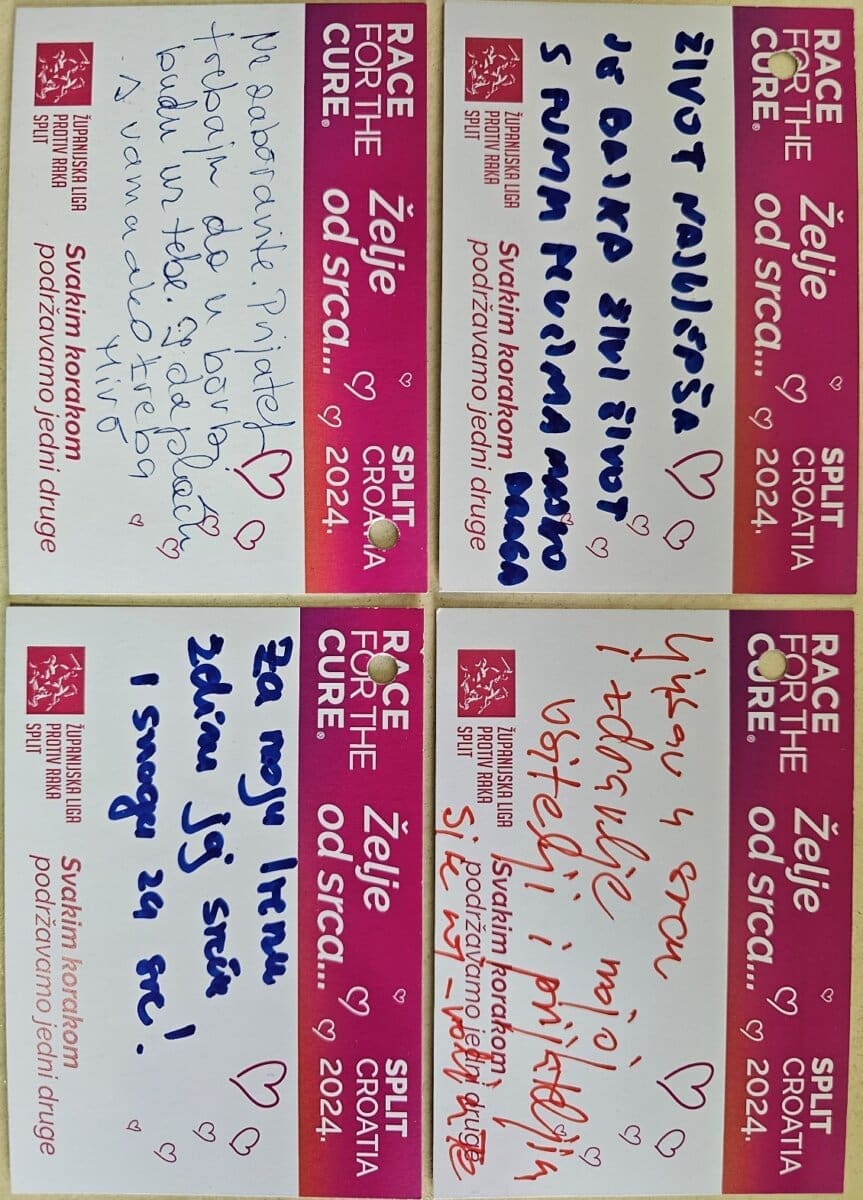 RACE
FOR THE
CURE®
Želje
od srca...
SPLIT
CROATIA
2024.
Ne zaboravite. Prijatelji
trebaju da u borbi
budu uz tebe.
s vama ako treba
Miro
ŽUPANIJSKA LIGA
PROTIV RAKA
SPLIT
Svakim korakom
podržavamo jedni druge
RACE
FOR THE
CURE®
Želje
od srca...
SPLIT
CROATIA
2024.
ŽIVOT NAJLJEPŠA
JE BAJKA ŽIVI ŽIVOT
S
DRAGA
ŽUPANIJSKA LIGA
PROTIV RAKA
SPLIT
Svakim korakom
podržavamo jedni druge
RACE
FOR THE
CURE®
Želje
od srca...
SPLIT
CROATIA
2024.
Za moju Irenu
i snagu za sve!
ŽUPANIJSKA LIGA
PROTIV RAKA
SPLIT
Svakim korakom
podržavamo jedni druge
RACE
FOR THE
CURE®
Želje
od srca...
SPLIT
CROATIA
2024.
Ljubav u srcu
i zdravlje mojoj
obitelji i prijateljima
ŽUPANIJSKA LIGA
PROTIV RAKA
SPLIT
Svakim korakom
podržavamo jedni druge